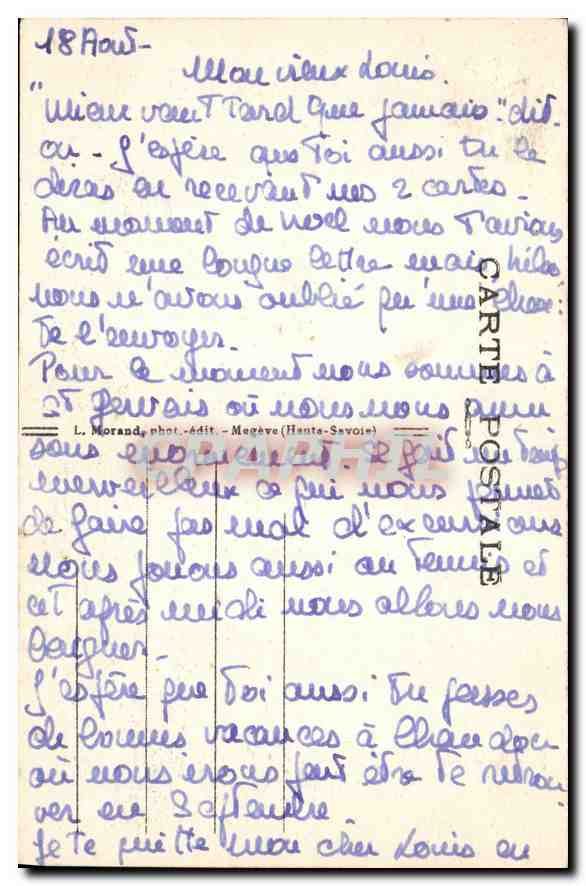 18 Août -
Mon vieux Louis.
"Mieux vaut Tard que jamais." dit-
on - J'espère que Toi aussi Tu le
diras en recevant nos 2 cartes -
Au moment de Noël nous T'avions
écrit une longue lettre mais hélas
nous n'avons oublié qu'une chose :
Te l'envoyer.
Pour le moment nous sommes à
St Gervais où nous nous amu
L. Morand, phot.-édit. - Megève (Haute-Savoie)
sons énormément. Il fait un Temps
merveilleux ce qui nous permet
de faire pas mal d'excursions
nous jouons aussi au Tennis et
cet après midi nous allons nous
baigner -
J'espère que Toi aussi Tu passes
de bonnes vacances à
où nous irons peut être Te retrou-
ver en Septembre.
Je te quitte mon cher Louis en
CARTE POSTALE